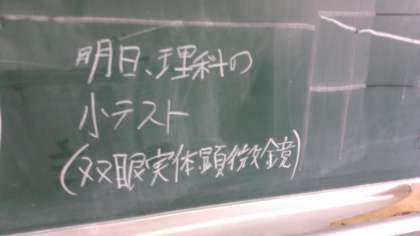 明日、理科の
小テスト
(双眼実体顕微鏡)